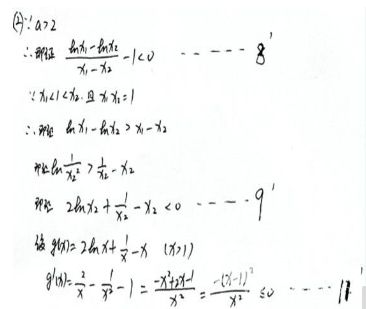 (2)∵ a>2
∴即证 (lnx₁-lnx₂)/(x₁-x₂) -1<0 ----- 8'
∵ x₁<1<x₂. 且 x₁x₂=1
∴即证 lnx₁-lnx₂ > x₁-x₂
即证 ln 1/x₂² > 1/x₂ - x₂
即证 2lnx₂ + 1/x₂ - x₂ <0 ---- 9'
设 g(x)=2lnx+ 1/x -x (x>1)
g'(x)= 2/x - 1/x² -1 = (-x²+2x-1)/x² = -(x-1)²/x² ≤0 ---- 11'